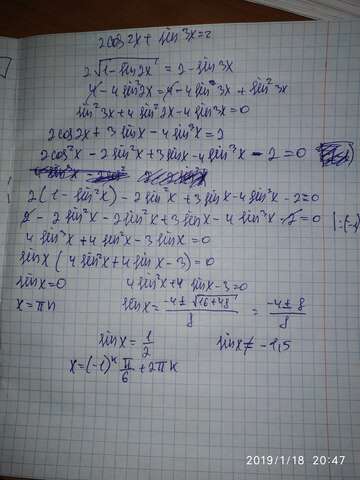 2cos2x + sin3x=2
2√1-sin2x = 2-sin3x
4-4sin²2x = 4-4sin3x + sin²3x
sin²3x+4sin²2x-4sin3x=0
2cos2x + 3sinx-4sin³x=2
2cos²x - 2sin²x+3sinx-4sin³x - 2=0
2(1-sin²x) - 2sin²x + 3sinx-4sin³x - 2=0
2 - 2sin²x-2sin²x+3sinx-4sin³x-2=0 |:(-1)
4sin³x+4sin²x-3sinx=0
sinx(4sin²x+4sinx-3)=0
sinx=0 4sin²x+4sinx-3=0
x=πn sinx= -4±√16+48 / 8 = -4±8 / 8
sinx= 1/2 sinx≠-1,5
x=(-1)ᵏ π/6 + 2πk
2019/1/18 20:47